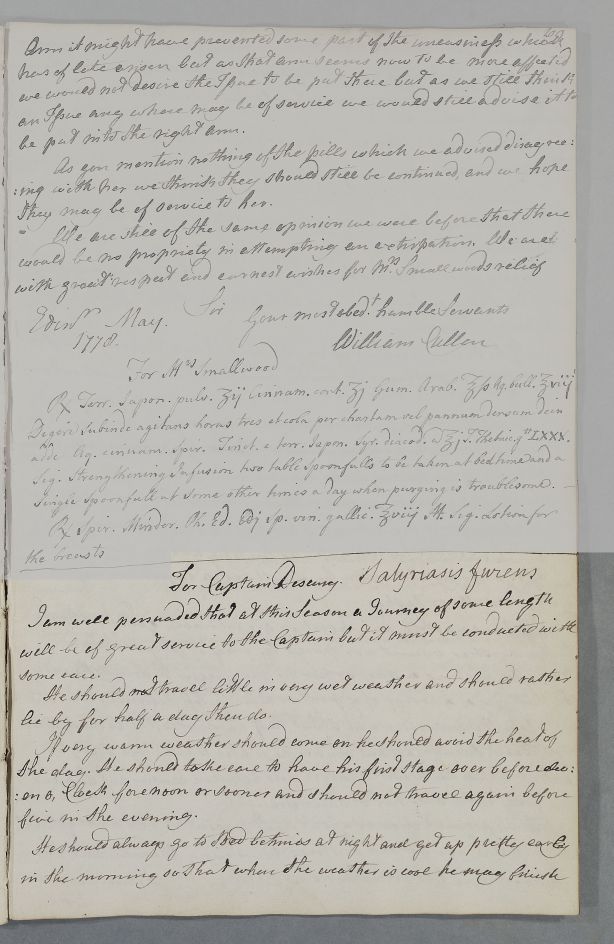 Arm it might have prevented some part of the uneasiness which
has of late arisen but as that arm seems now to be more affected
we would not desire the Issue to be put there but as we still think
an Issue any where may be of service we would still advise it to
be put into the right arm.
As you mention nothing of the pills which we advised disagree:
:ing with her we think they should still be continued, and we hope
they may be of service to her.
We are still of the same opinion we were before that there
would be no propriety in attempting an extirpation. We are
with great respect and earnest wishes for Mrs Smallwoods relief
Sir Your most obedt. humble Servants
Edinr. May.
1778.
William Cullen
For Mrs Smallwood
Rx Terr. Japon. pulv. ʒij Cinnam. cont. ʒj Gum. Arab. ℥ſs Aq. bull. ℥viij
Digere subinde agitans horas tres et cola per chartam vel pannum densum dein
adde Aq. cinnam. Spir. Tinct. e terr. Japon. Syr. diacod. a ℥j T. Thebaic. gtt LXXX.
Sig. Strengthening Infusion two table spoonfulls to be taken at bedtime and a
single spoonfull at some other times a day when purging is troublesome.
Rx Spir. Minder. Ph. Ed. Sp. vin. gallic. ℥viij M. Sig. Lotion for
the breasts
For Captain Satyriasis furens
I am well persuaded that at this Season a Journey of some length
will be of great service to the Captain but it must be conducted with
some care.
He should not travel little in very wet weather and should rather
lie by for half a day then do.
If very warm weather should come on he should avoid the heat of
the day. He should take care to have his first stage over before
:en o, Clock forenoon or sooner and should not travel again before
five in the evening.
He should always go to Bed betimes at night and get up pretty early
in the morning so that when the weather is cool he may finish